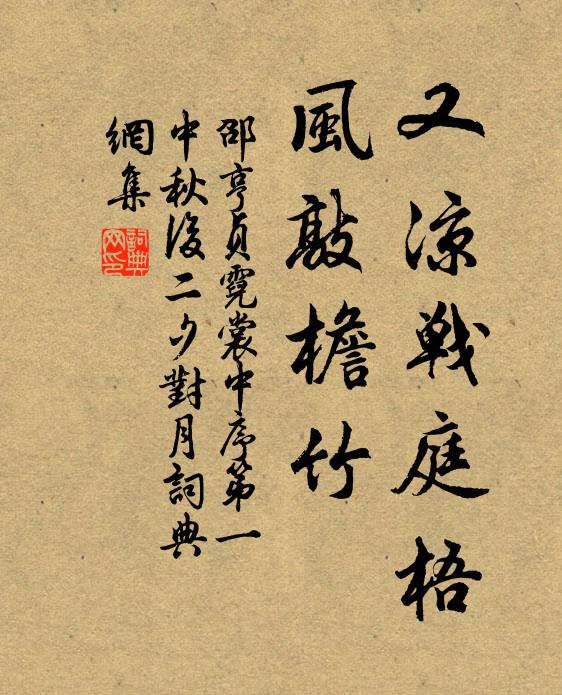 又凉戰庭梧
風敲檐竹
邵亨貞霓裳中序第一
中秋後二夕對月詞典
網集
詞典網印